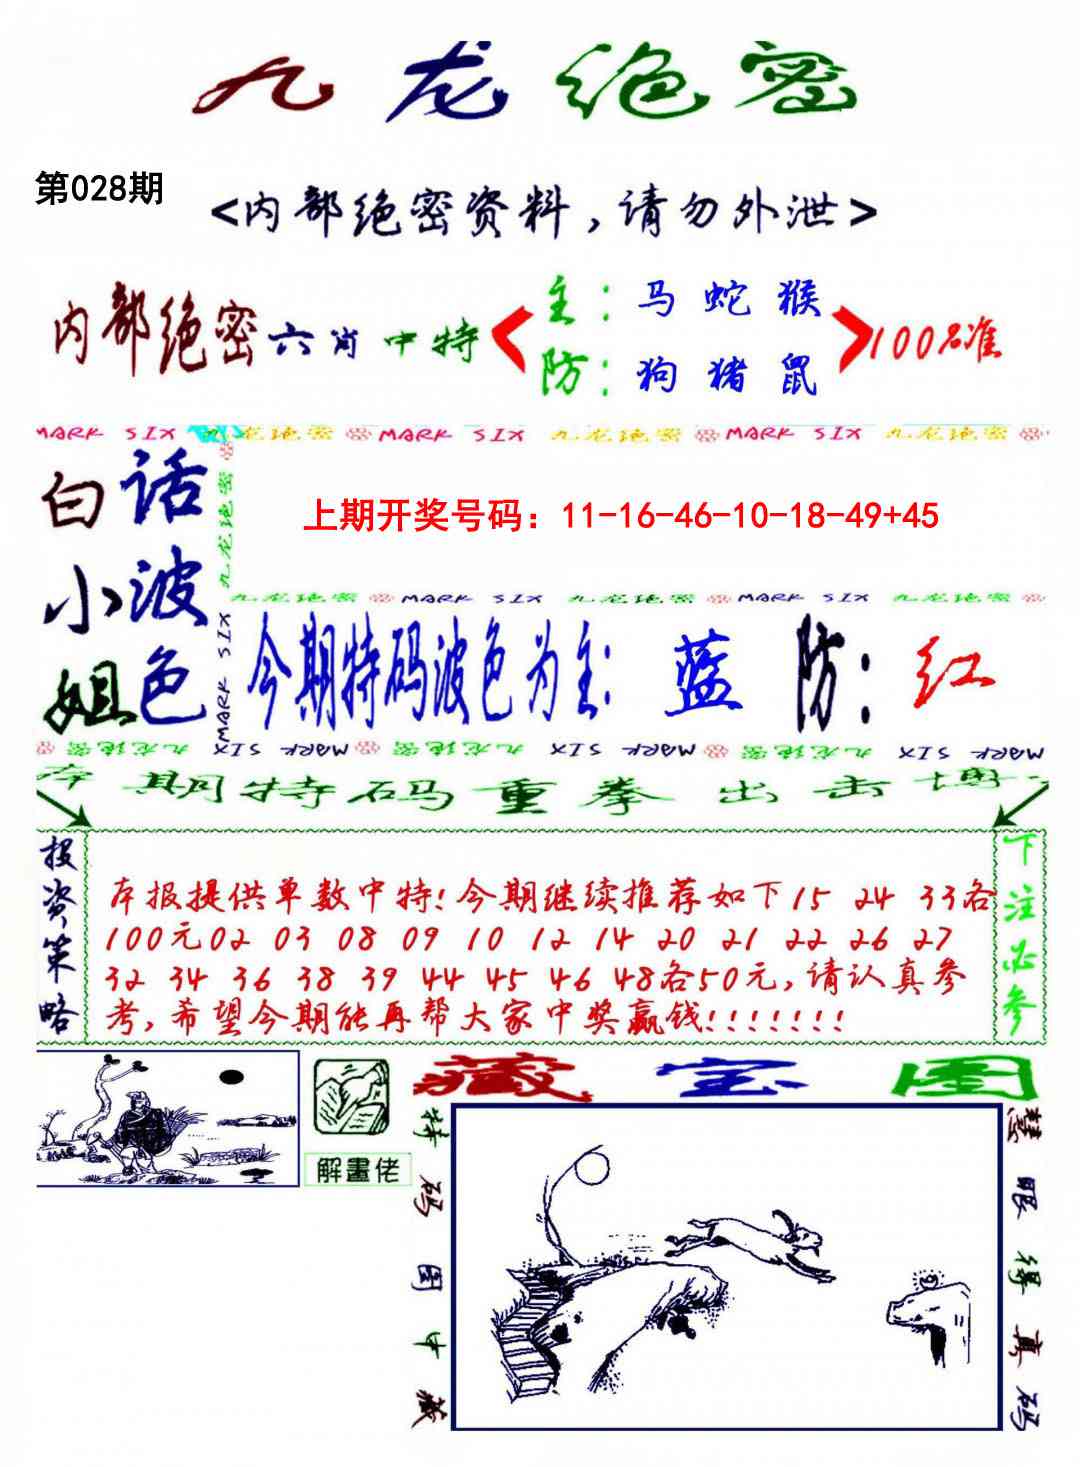 九龙绝密
第028期
<内部绝密资料,请勿外泄>
内部绝密六肖中特
主:马 蛇 猴
防:狗 猪 鼠
100%准
MARK SIX 九龙绝密 MARK SIX 九龙绝密 MARK SIX 九龙绝密
白小姐
话波色
九龙绝密
MARK SIX
上期开奖号码：11-16-46-10-18-49+45
九龙绝密 MARK SIX 九龙绝密 MARK SIX 九龙绝密
今期特码波色为主:蓝 防:红
九龙绝密 MARK SIX 九龙绝密 MARK SIX 九龙绝密 MARK SIX
本期特码重拳出击博
投资策略
本报提供单数中特!今期继续推荐如下15 24 33各
100元02 03 08 09 10 12 14 20 21 22 26 27
32 34 36 38 39 44 45 46 48各50元,请认真参
考,希望今期能再帮大家中奖赢钱!!!!!!!
下注必参
解畫佬
藏宝图
特码图中藏
慧眼得真码